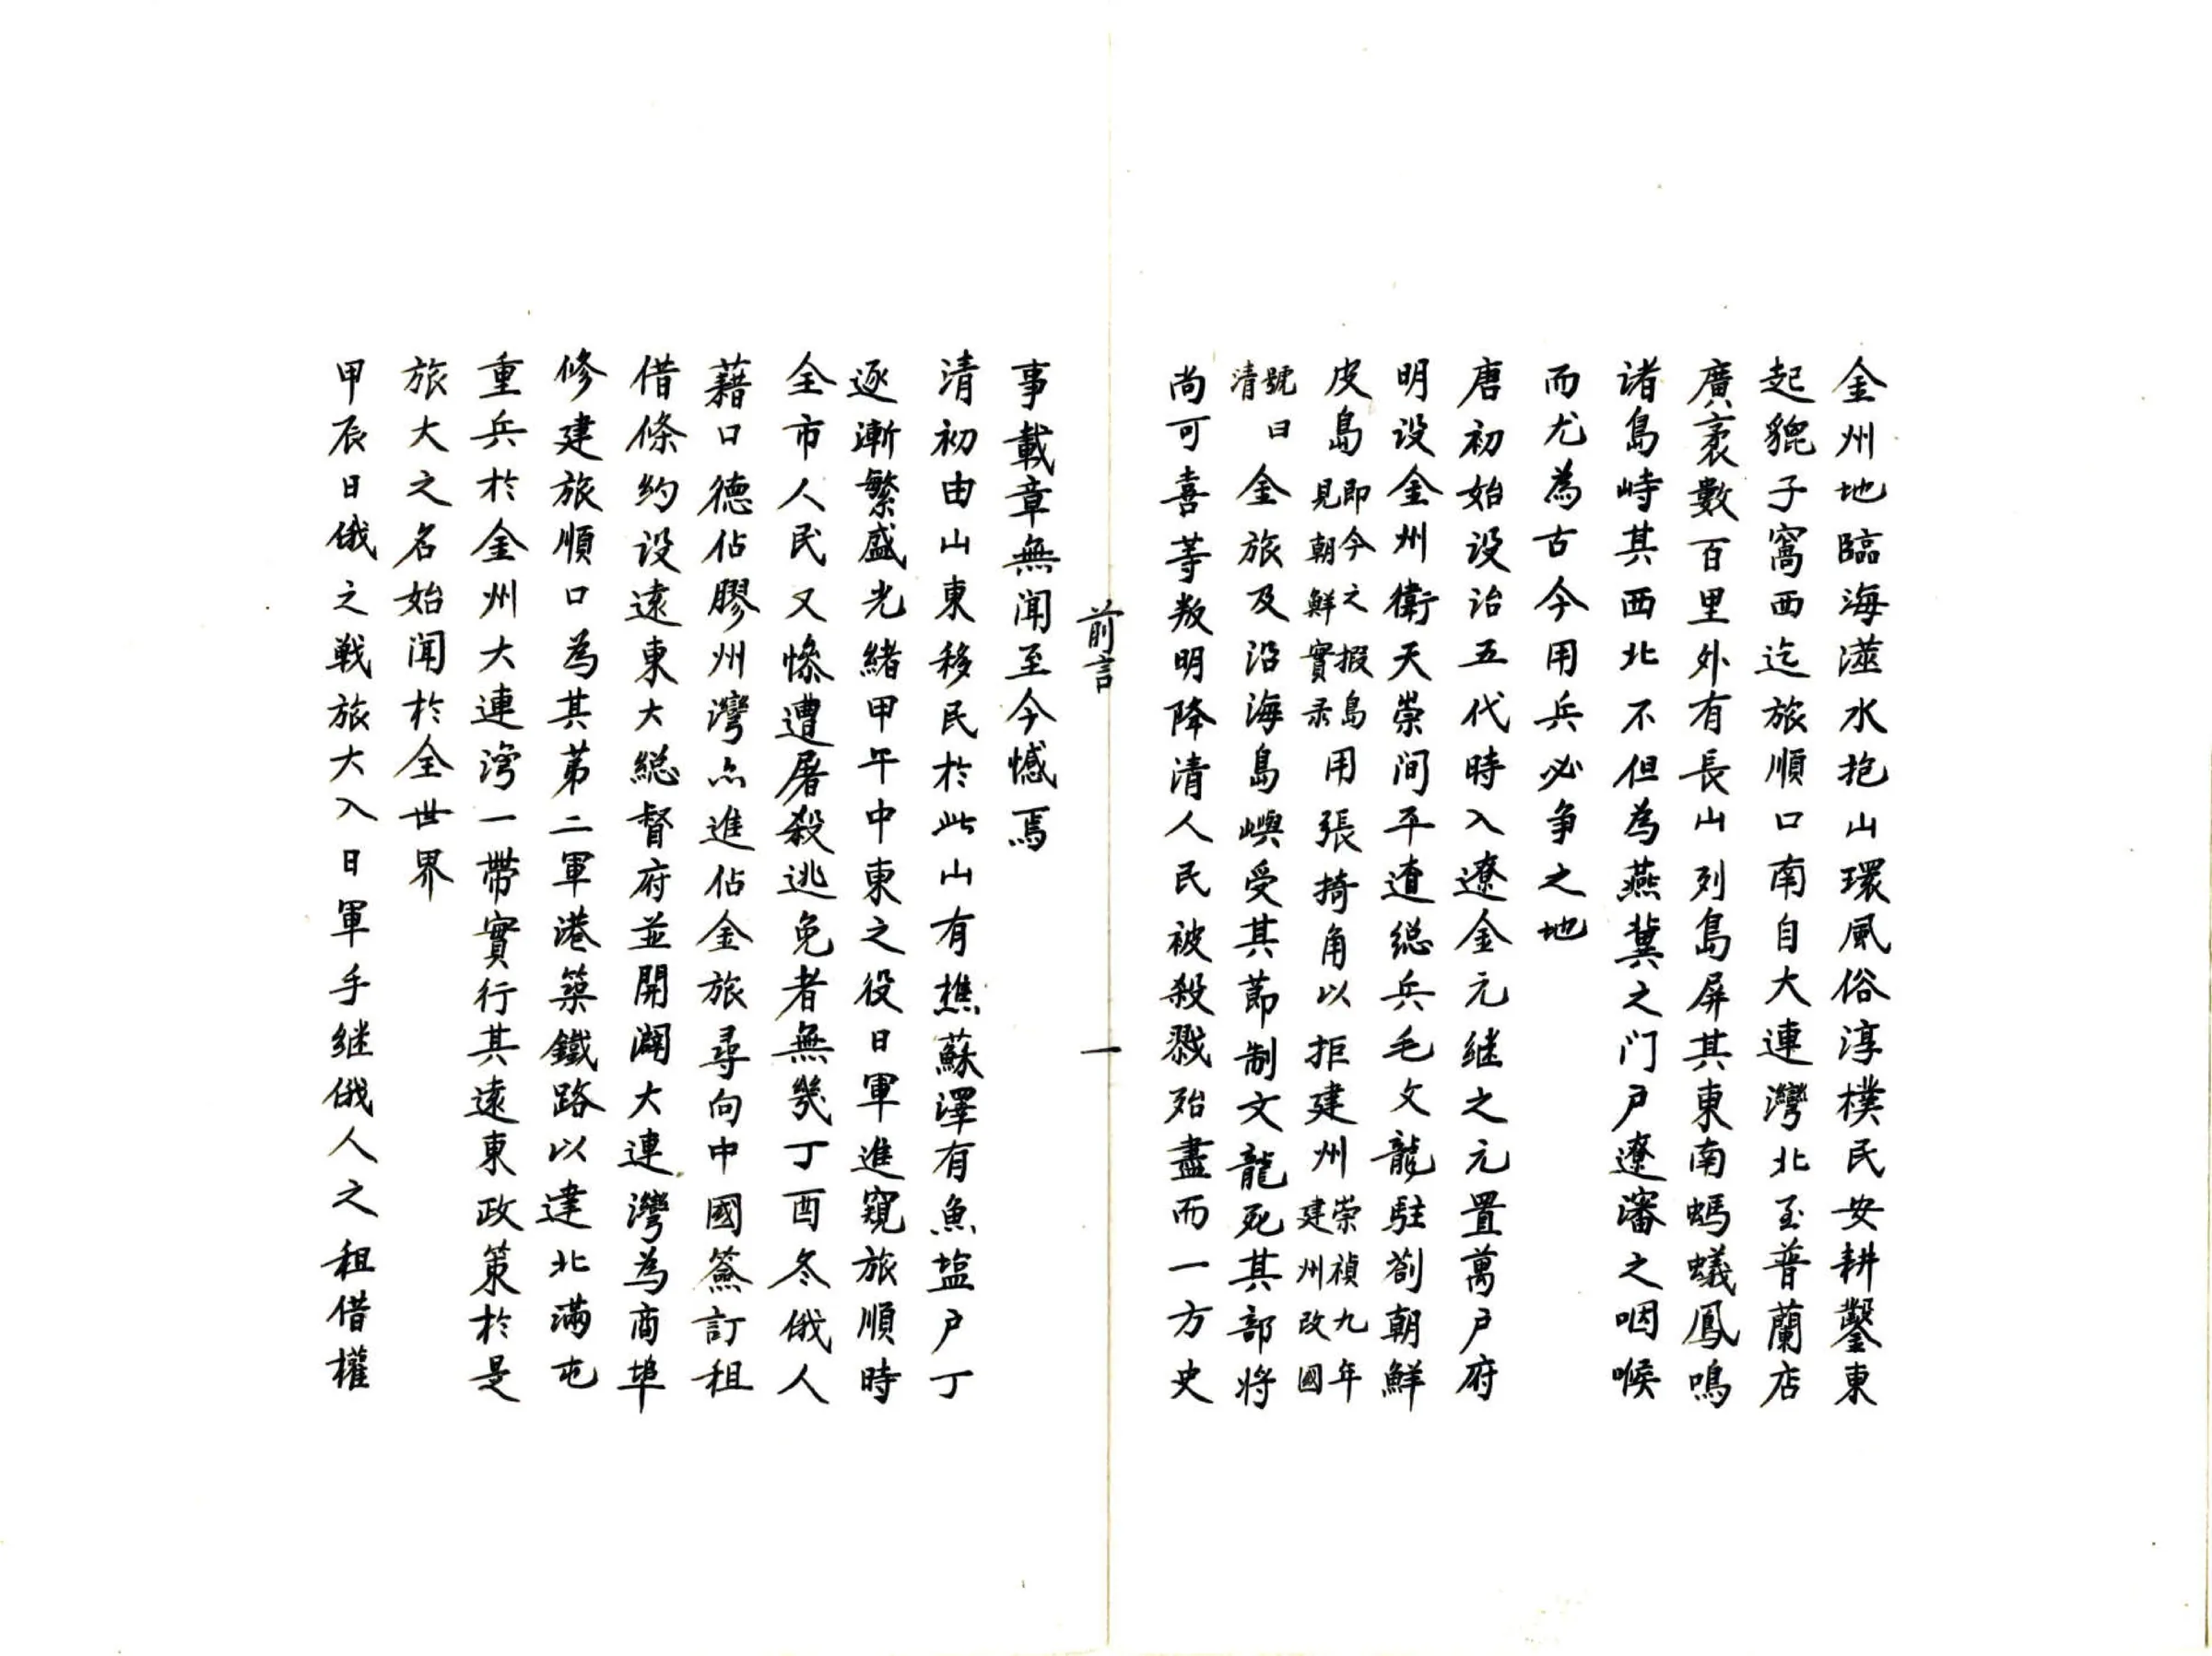 金州地臨海澨水抱山環風俗淳樸民安耕鑿東
起貔子窩西迄旅順口南自大連灣北至普蘭店
廣袤數百里外有長山列島屏其東南螞蟻鳳鳴
诸島峙其西北不但為燕冀之门户遼瀋之咽喉
而尤為古今用兵必争之地
唐初始设治五代時入遼金元继之元置萬户府
明设金州衛天崇间平遼総兵毛文龍駐劄朝鮮
皮島即今之椵島見朝鮮實录用張掎角以拒建州崇禎九年建州改國
號曰清金旅及沿海島嶼受其莭制文龍死其部将
尚可喜等叛明降清人民被殺戮殆盡而一方史
前言
一
事載章無闻至今憾焉
清初由山東移民於此山有樵蘇澤有魚塩户丁
逐漸繁盛光緒甲午中東之役日軍進窺旅順時
全市人民又惨遭屠殺逃免者無幾丁酉冬俄人
藉口德佔膠州灣亦進佔金旅尋向中國簽訂租
借條約设遠東大総督府並開闢大連灣為商埠
修建旅順口為其第二軍港築鐵路以達北滿屯
重兵於金州大連湾一帶實行其遠東政策於是
旅大之名始闻於全世界
甲辰日俄之戦旅大入日軍手继俄人之租借權